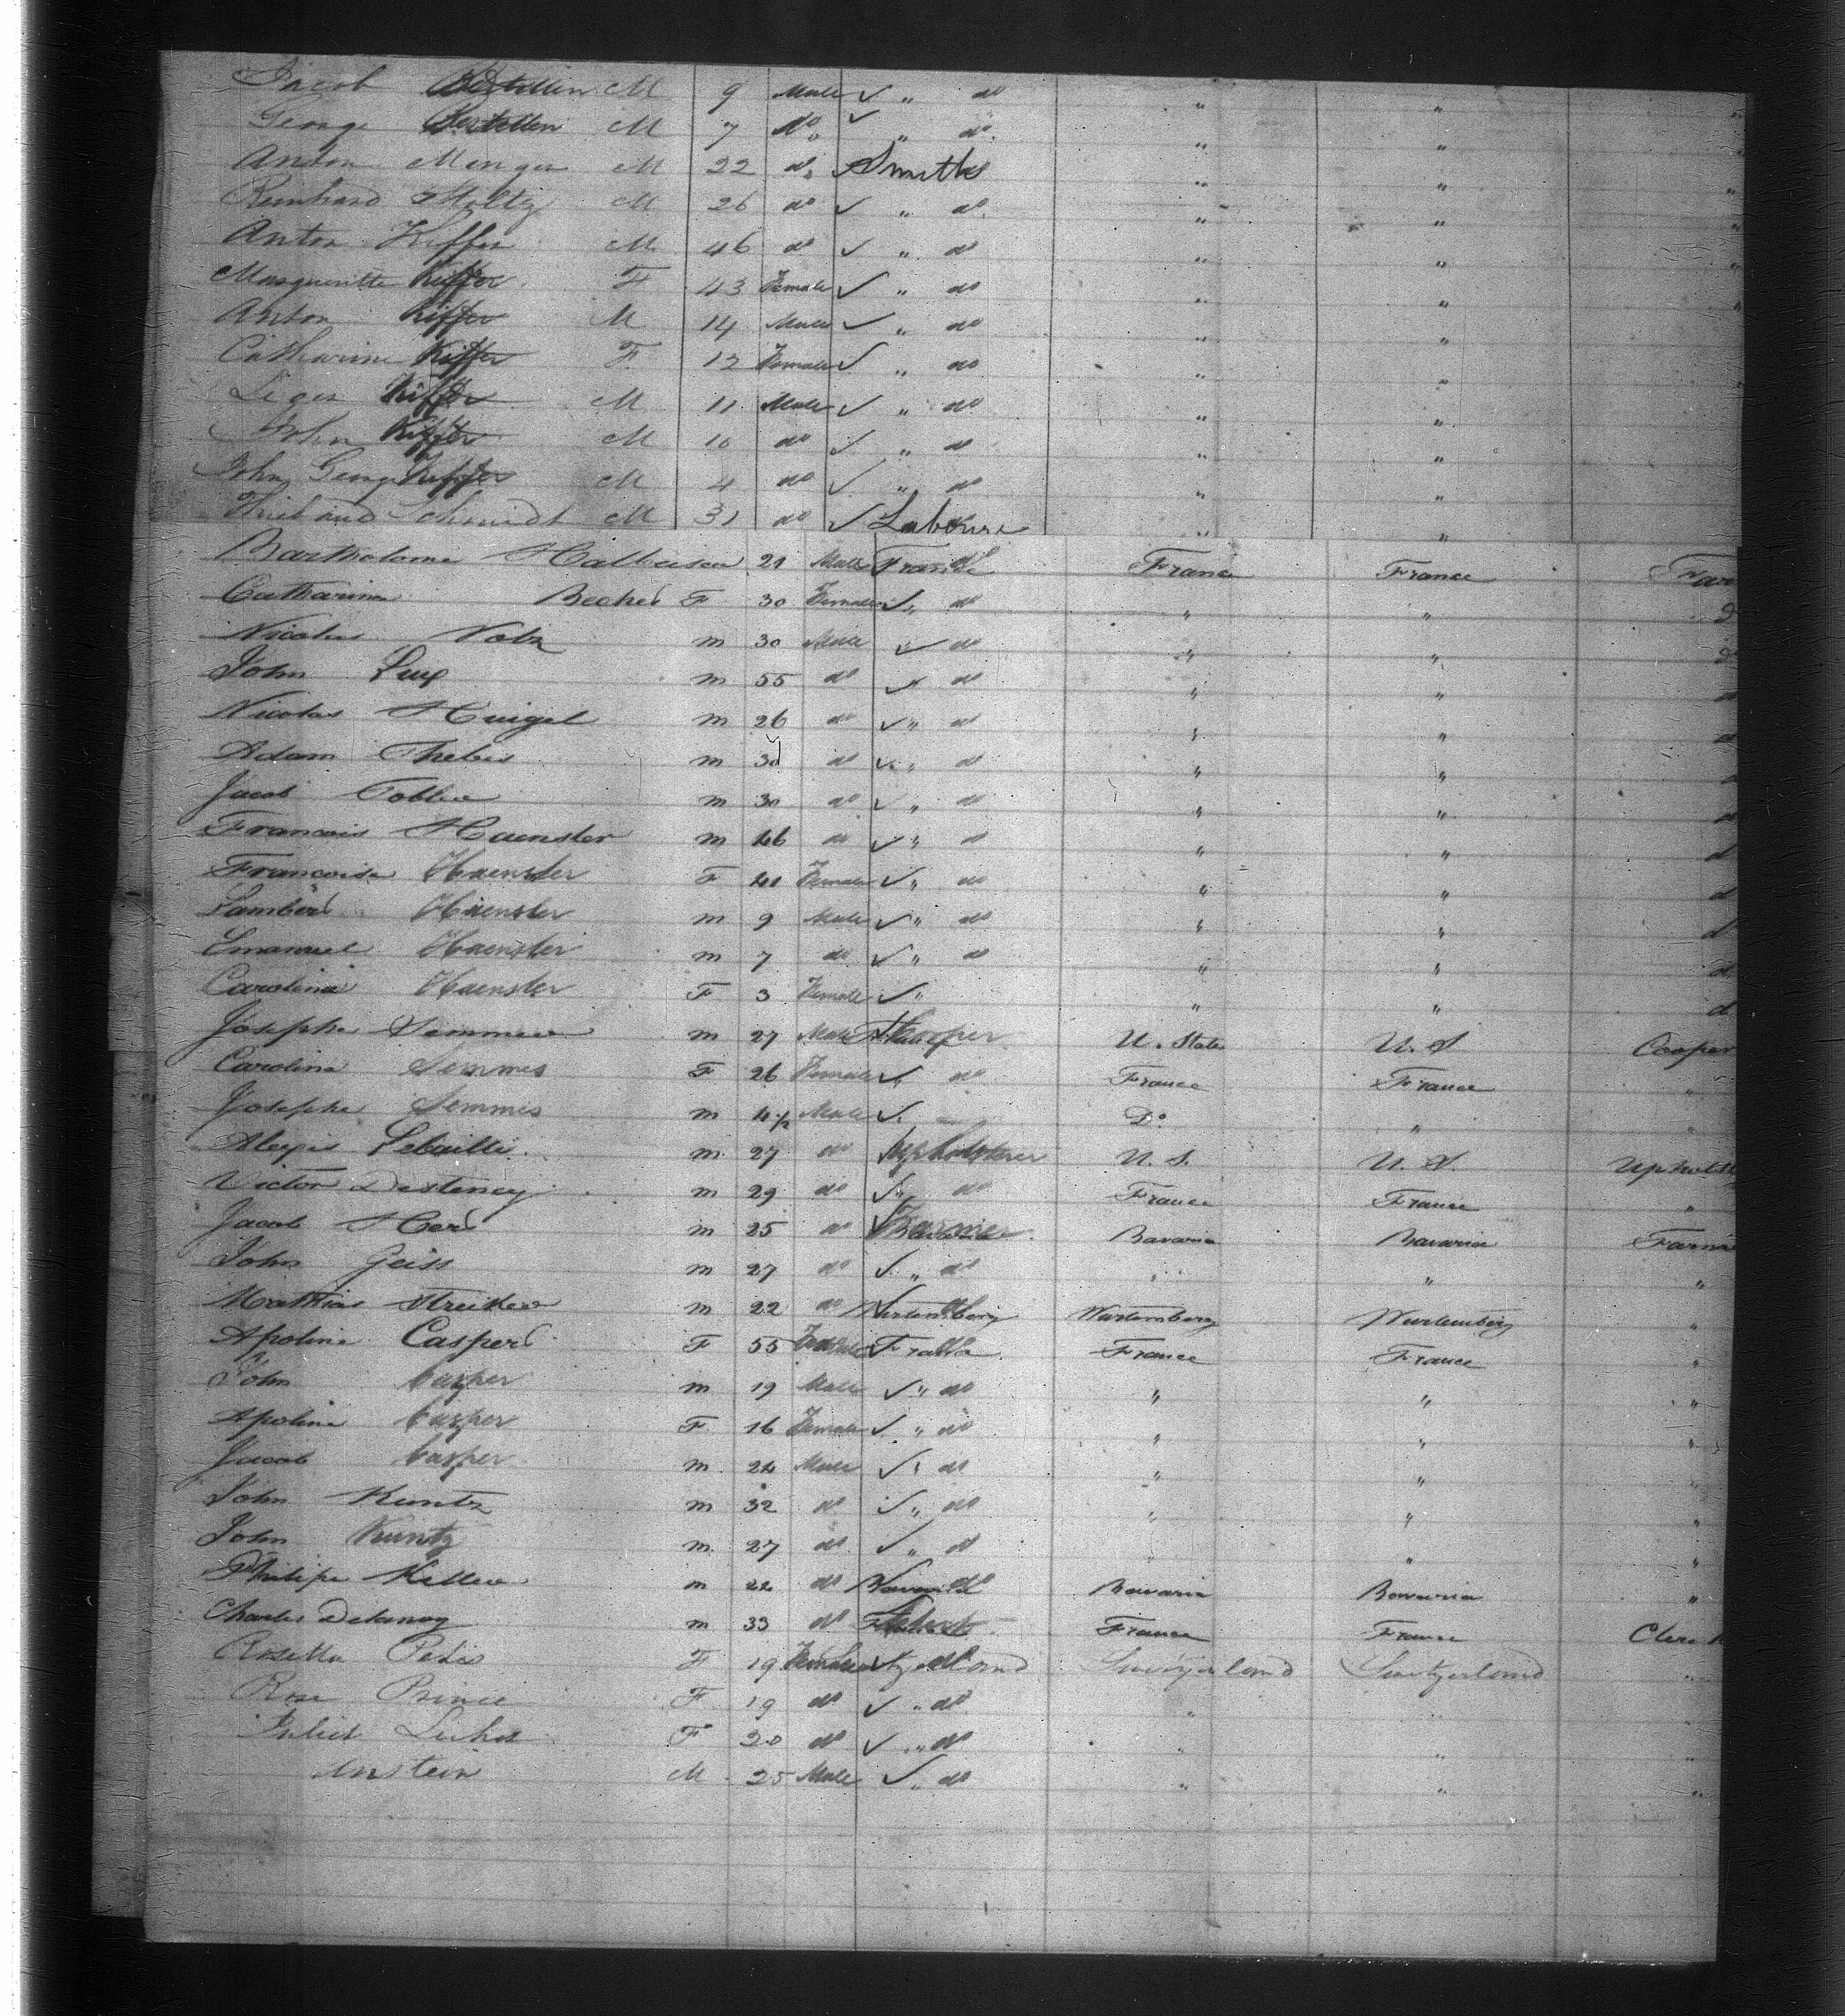 Jacob M 9 Male ✓ " do " " "
George M 7 do ✓ " do " " "
Anton Menger M 22 do ✓ Smith " " "
Reinhard Moltz M 26 do ✓ " do " " "
Anton Kiffer M 46 do ✓ " do " " "
Margueritte Kiffer F 43 Female ✓ " do " " "
Anton Kiffer M 14 Male ✓ " do " "
Catharine Kiffer F 12 Female ✓ " do " "
Leger Kiffer M 11 Male ✓ " do " "
John Kiffer M 10 do ✓ " do " "
John George Kiffer M 4 do ✓ " do " "
Thiebaud Schmidt M 31 do ✓ Labourer " "
Bartholome 21 Male France France France
Catharina Becker F 30 Female ✓ " do " "
Nicolas Volz m 30 Male ✓ do " "
John Lux m 55 do ✓ " do " "
Nicolas Heigel m 26 do ✓ " do " "
Adam Thebis m 30 do ✓ " do " "
Jacob m 30 do ✓ " do " "
Francois Haenster m 46 do ✓ " do " " d
Francoise Haenster F 41 Female ✓ " do " " d
Lambert Haenster m 9 Male ✓ " do " " d
Emanuel Haenster m 7 do ✓ " do " " d
Carolina Haenster F 3 Female ✓ " " " d
Josephe Semmes m 27 Male Cooper U. States U. S Cooper
Carolina Semmes F 26 Female ✓ do France France "
Josephe Semmes m 4½ Male ✓ Do " "
Alexis Lebailli m 27 do Upholsterer U. S. U. S. Upholst
Victor Destency m 29 do ✓ " do France France "
Jacob Herd m 25 do ✓ Bavaria Bavaria Farm
John Geiss m 27 do ✓ " do " " "
Mathias Streicher m 22 do Wurtemberg Wurtemberg Wurtemberg "
Apoline Casper F 55 Female France France France "
John Casper m 19 Male ✓ " do " " "
Apoline Casper F 16 Female ✓ " do " " "
Jacob Casper m 24 Male ✓ " do " " "
John Kuntz m 32 do ✓ " do " " "
John Kuntz m 27 do ✓ " do " " "
Philipe Keller m 22 do Bavaria Bavaria Bavaria "
Charles Delanoy m 33 do France France Clerk
Rosetta Petis F 19 Female do Switzerland Switzerland "
Rose Prince F 19 do ✓ " do " " "
Juliet F 20 do ✓ " do " " "
Anstein M 25 Male ✓ " do " " "